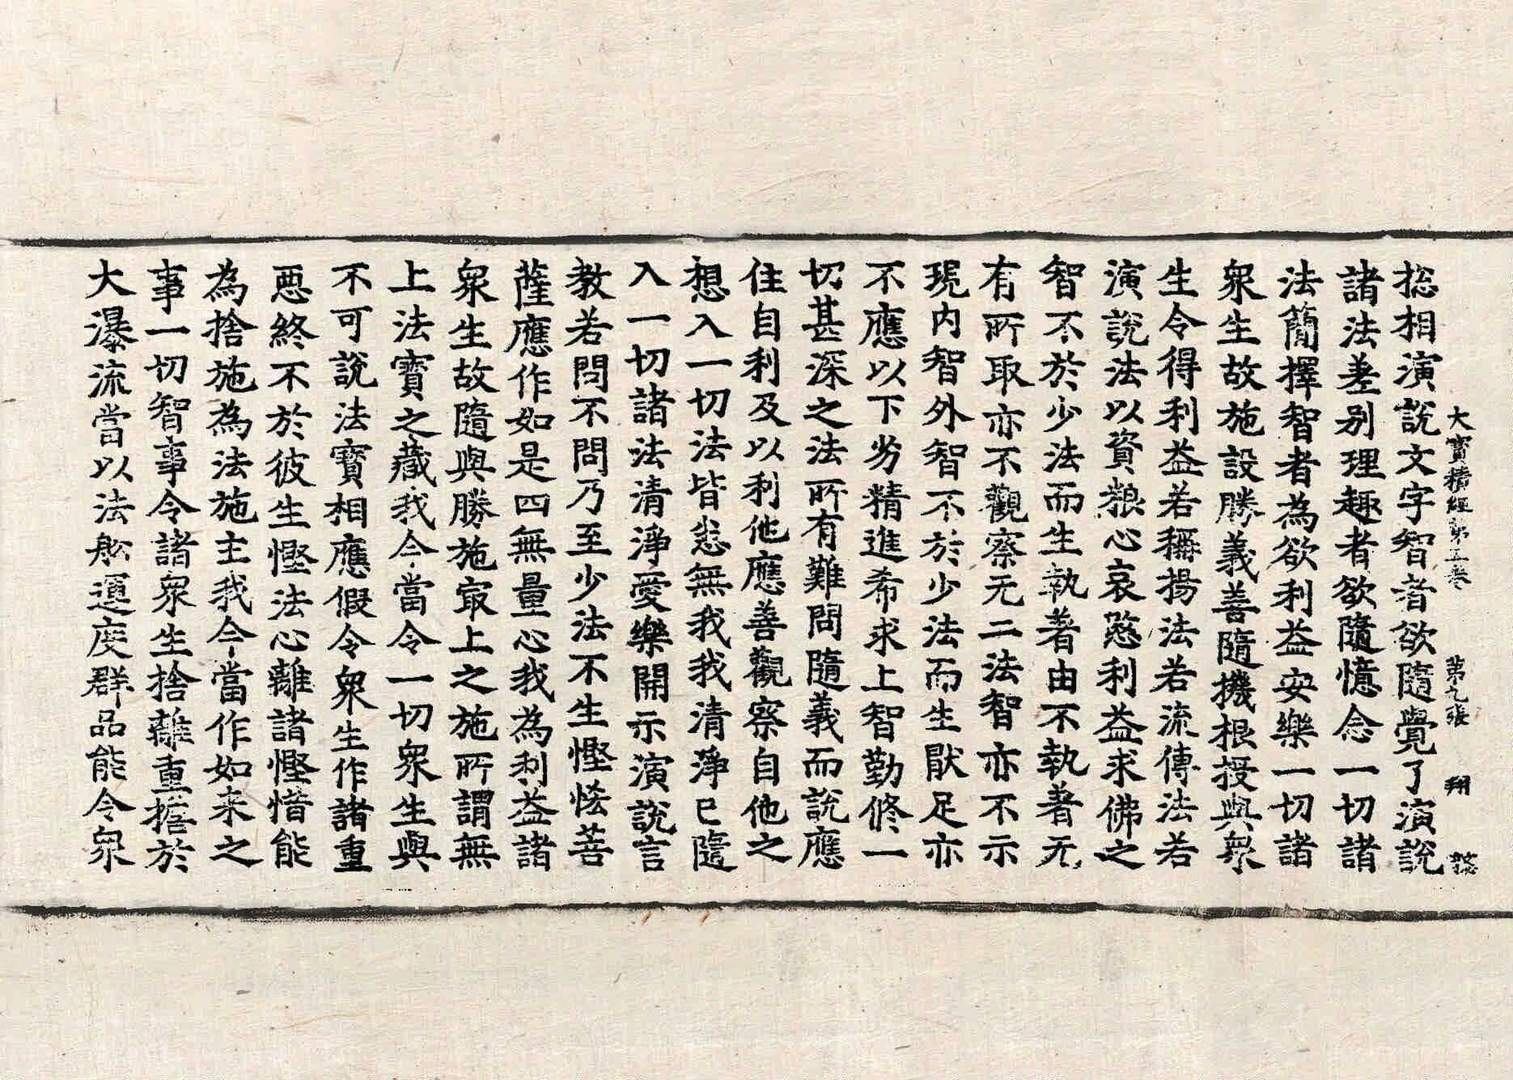 大寶積經第五卷 第九張 翔
捴相演說文字智者欲隨覺了演說
諸法差别理趣者欲隨憶念一切諸
法簡擇智者為欲利益安樂一切諸
衆生故施設勝義善隨機根授與衆
生令得利益若稱揚法若流傳法若
演說法以資粮心哀愍利益求佛之
智不於少法而生執著由不執著无
有所取亦不觀察无二法智亦不示
現内智外智不於少法而生猒足亦
不應以下劣精進希求上智勤修一
切甚深之法所有難問隨義而說應
住自利及以利他應善觀察自他之
想入一切法皆悉無我我清淨已隨
入一切諸法清淨愛樂開示演說言
教若問不問乃至少法不生慳悋菩
薩應作如是四無量心我為利益諸
衆生故隨與勝施冣上之施所謂無
上法寶之藏我今當令一切衆生與
不可說法寶相應假令衆生作諸重
惡終不於彼生慳法心離諸慳惜能
為捨施為法施主我今當作如来之
事一切智事令諸衆生捨離重擔於
大瀑流當以法舩運度群品能令衆